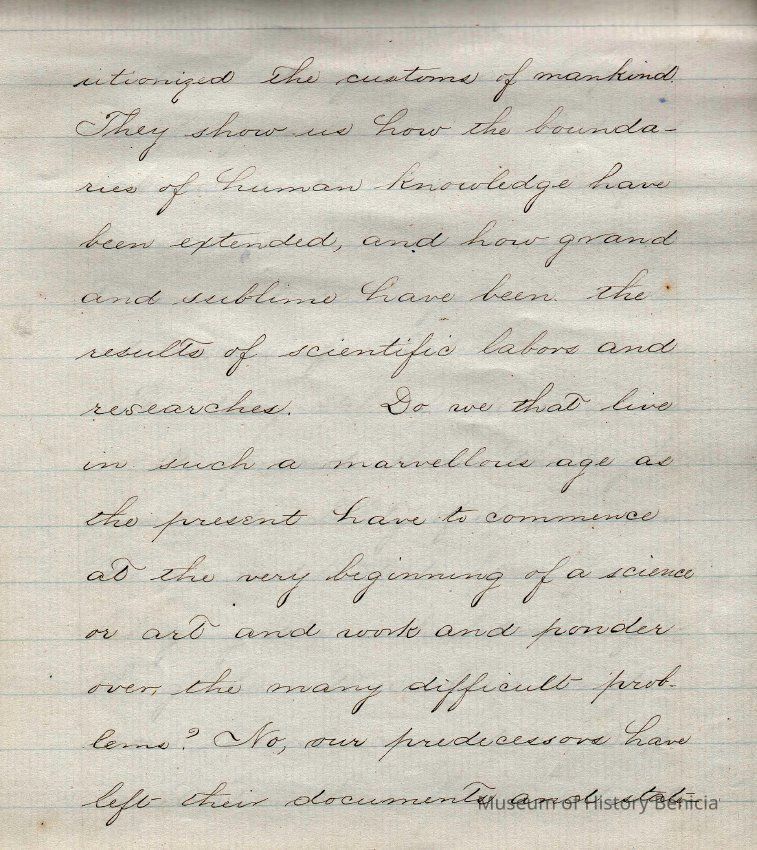 utionized the customs of mankind.
They show us how the bounda-
ries of human knowledge have
been extended, and how grand
and sublime have been the
results of scientific labors and
researches. Do we that live
in such a marvellous age as
the present have to commence
at the very beginning of a science
or art and work and ponder
over, the many difficult prob-
lems? No, our predecessors have
left their documents and state-
Museum of History Benicia